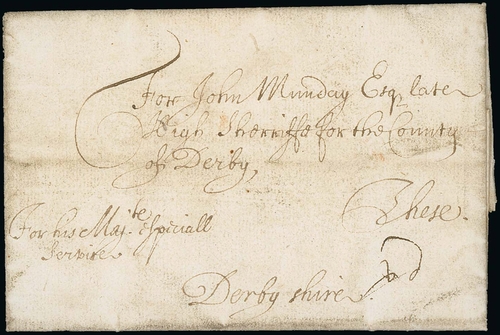 For John Munday Esqr late
High Sherriffe for the County
of Derby,
These.
For his Majte especiall
Service
Derby shire.